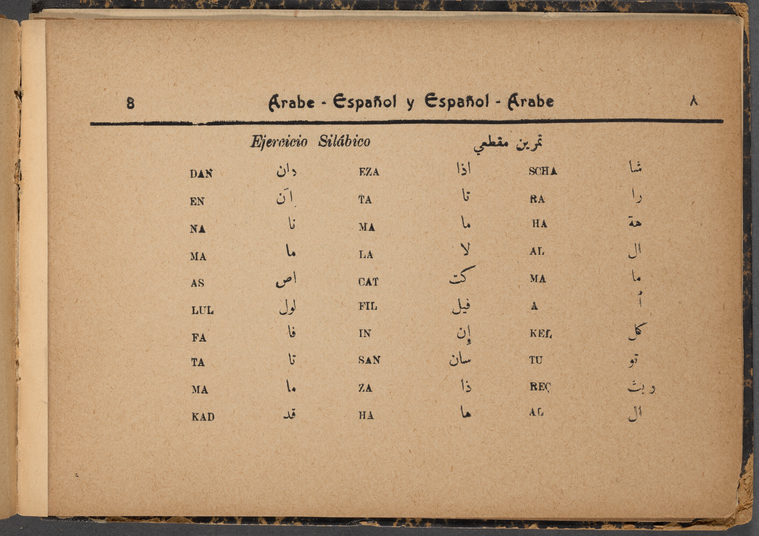 8 Arabe - Español y Español - Arabe ٨
Ejercicio Silábico تمرين مقطعي
DAN دان EZA اذا SCHA شا
EN اَن TA تا RA را
NA نا MA ما HA هة
MA ما LA لا AL ال
AS اص CAT كت MA ما
LUL لول FIL فيل A أ
FA فا IN إن KEL كل
TA تا SAN سان TU تو
MA ما ZA ذا REÇ
KAD قد HA ها AL ال